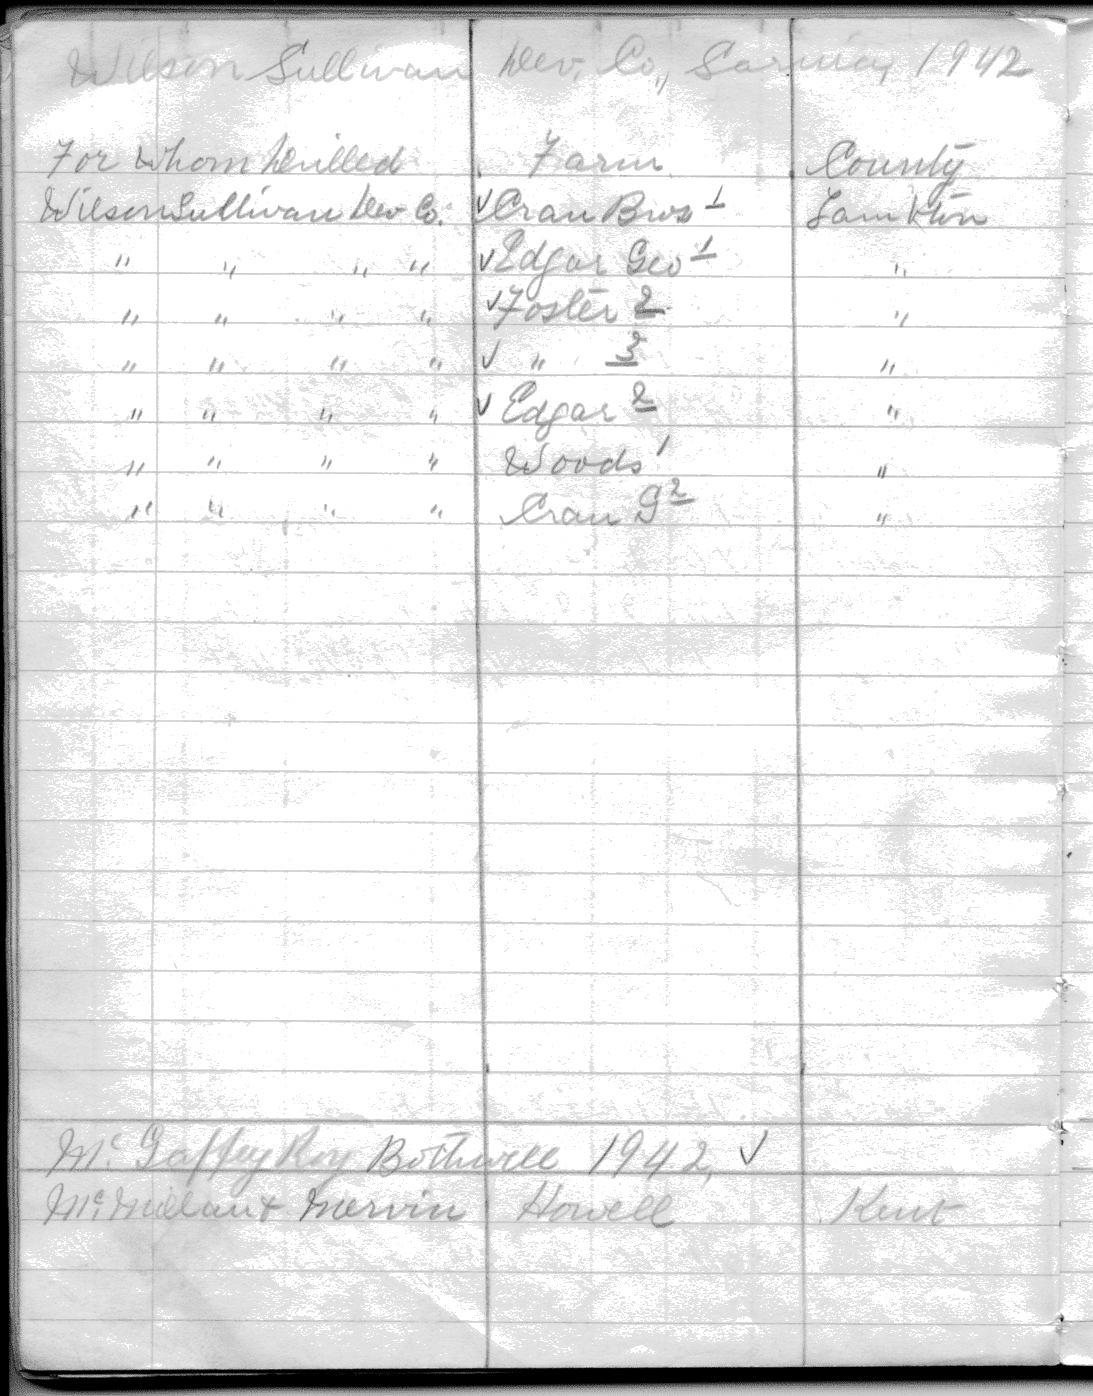 Wilson Sullivan Dev. Co., Sarnia, 1942
For Whom Drilled Farm County
Wilson Sullivan Dev Co. ✓ Cran Bros 1 Lambton
" " " " ✓ Edgar Geo 1 "
" " " " ✓ Foster 2 "
" " " " ✓ " 3 "
" " " " ✓ Edgar 2 "
" " " " Woods 1 "
" " " " Cran G 2 "
Mc Gaffey Roy Bothwell 1942, ✓
Mc Millan & Marvin Howell Kent